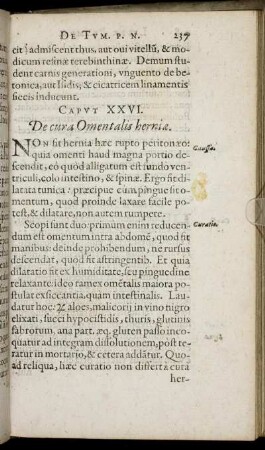 DE TVM. P. N. 237
cit ʒ admiscent thus, aut oui vitellū, & mo-
dicum resinæ terebinthinæ. Demum stu-
dent carnis generationi, vnguento de be-
tonica, aut Iisidis, & cicatricem linamentis
siccis inducunt.
CAPVT XXVI.
De cura Omentalis herniæ.
NON fit hernia hæc rupto peritonæo:
quia omenti haud magna portio de-
scendit, eò quòd alligatum est fundo ven-
triculi, colo intestino, & spinæ. Ergo fit di-
latata tunica: præcipue cum pingue sit o-
mentum, quod proinde laxare facile po-
test, & dilatare, non autem rumpere.
Causa.
Scopi sunt duo: primum enim reducen-
dum est omentum intra abdomē, quod fit
manibus: deinde prohibendum, ne rursus
descendat, quod fit astringentib. Et quia
dilatatio fit ex humiditate, seu pinguedine
relaxante: ideo ramex omētalis maiora po-
stulat exsiccantia, quam intestinalis. Lau-
datur hoc: ℞ aloes, malicorij in vino nigro
elixati, succi hypocistidis, thuris, glutinis
fabrorum, ana part. æq. gluten passo inco-
quatur ad integram dissolutionem, pòst te-
ratur in mortario, & cetera addātur. Quo-
ad reliqua, hæc curatio non differt à cura
Curatio.
her-